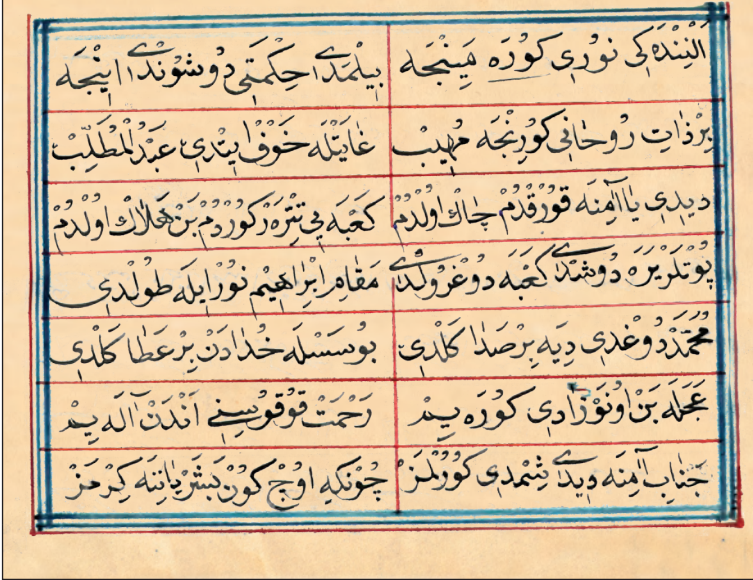 اَلْنِنْدَه كِى نُورِى كُورَه مِينْجَه بِيلْمَدِى حِكْمَتِى دُوشُونْدِى اِينْجَه
بِرْ ذَاتِ رُوحَانِى كُورِنْجَه مُهِيبْ غَايَتْلَه خَوْفْ اِيتْدِى عَبْدُ الْمُطَّلِبْ
دِيدِى يَا آمِنَه قُورْقْدُمْ چَاكْ اُولْدُمْ كَعْبَه يِى تِتْرَه رْ كُورْدُمْ بَنْ هَلَاكْ اُولْدُمْ
پُوتْلَرْ يَرَه دُوشْدِى كَعْبَه دُوغْرُولْدِى مَقَامِ اِبْرَاهِيمْ نُورْ اِيلَه طُولْدِى
مُحَمَّدْ دُوغْدِى دِيَه بِرْ صَدَا كَلْدِى بُو سَسْلَه خُدَادَنْ بِرْ عَطَا كَلْدِى
عَجَلَه بَنْ اُو نَوْزَادِى كُورَه يِمْ رَحْمَتْ قُوقُوسِنِى اَنْدَنْ آلَه يِمْ
جَنَابِ آمِنَه دِيدِى شِمْدِى كُورُلْمَزْ چُونْكِه اُوچْ كُونْ بَشَرْ يَانِنَه كِرْمَزْ